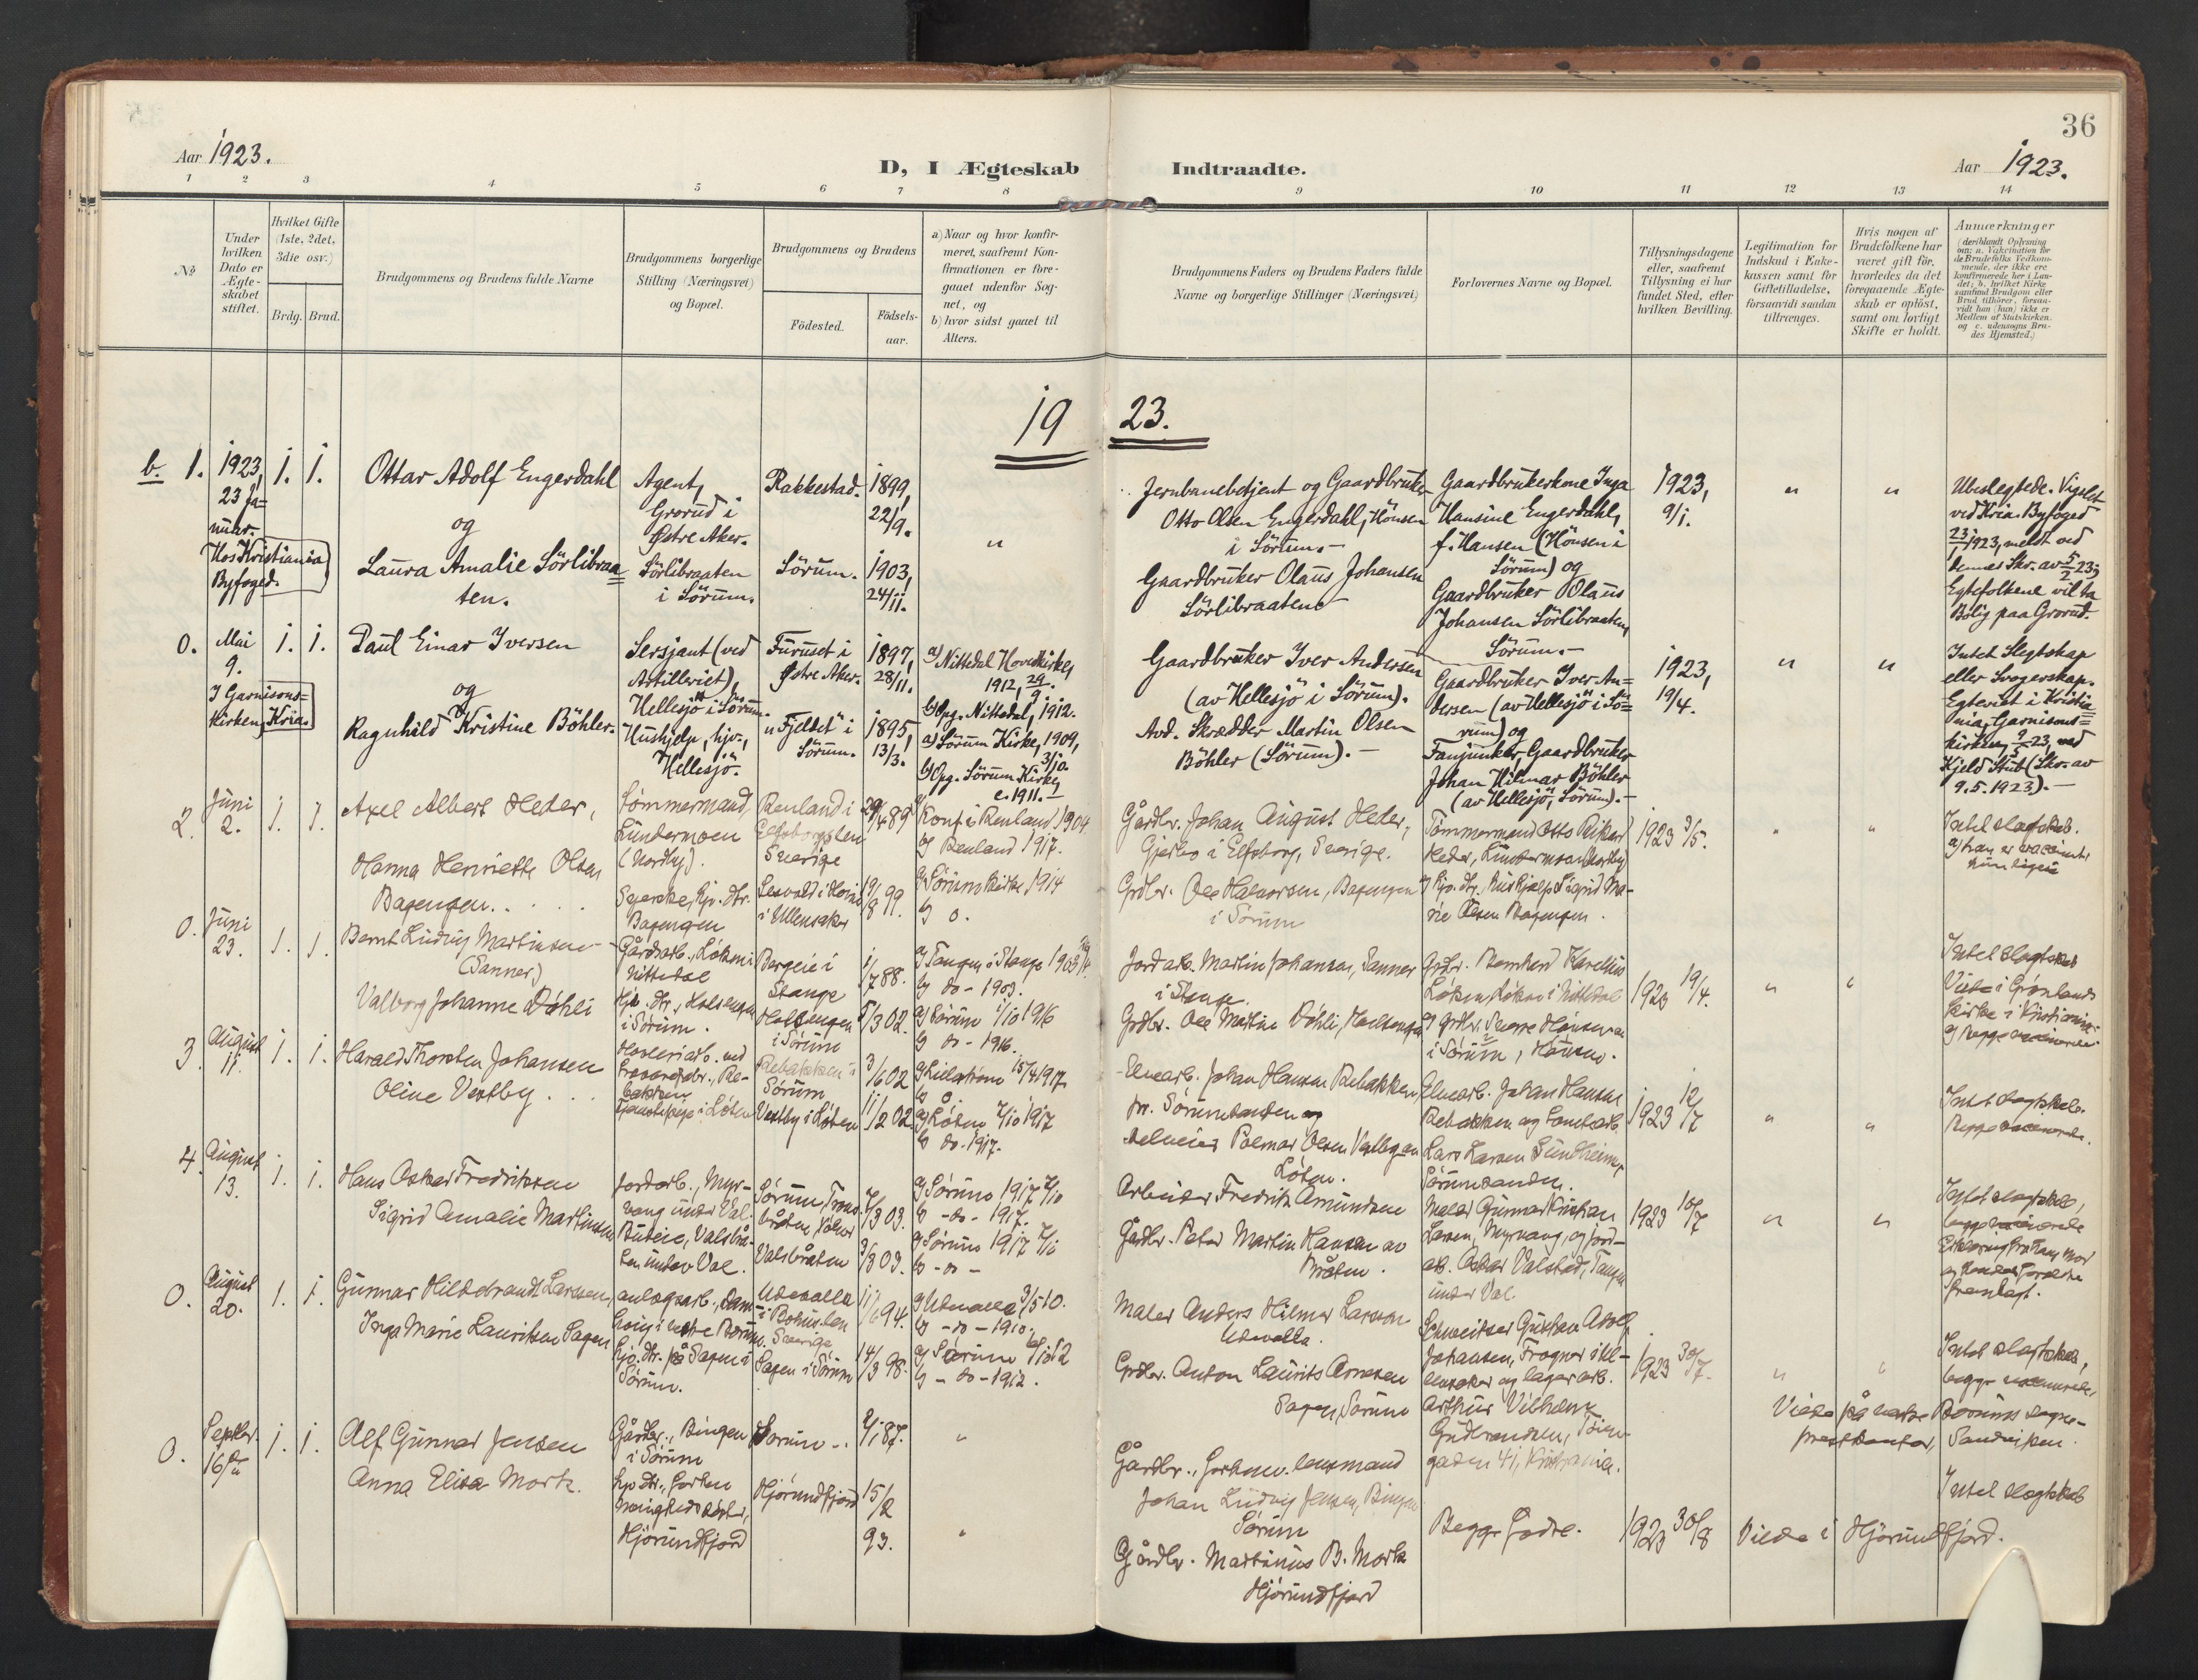 36
Aar 1923.
D, I Ægteskab Indtraadte.
Aar 1923.
1 2 3 4 5 6 7 8 9 10 11 12 13 14
No
Under hvilken Dato er Ægteskabet stiftet.
Hvilket Gifte (1ste, 2det, 3die osv.)
Brdg. Brud.
Brudgommens og Brudens fulde Navne
Brudgommens borgerlige Stilling (Næringsvei) og Bopæl.
Brudgommens og Brudens
Födested.
Födselsaar.
a) Naar og hvor konfirmeret, saafremt Konfirmationen er foregaaet udenfor Sognet, og
b) hvor sidst gaaet til Alters.
Brudgommens Faders og Brudens Faders fulde Navne og borgerlige Stillinger (Næringsvei)
Forlovernes Navne og Bopæl.
Tillysningsdagene eller, saafremt Tillysning ei har fundet Sted, efter hvilken Bevilling.
Legitimation for Indskud i Enkekassen samt for Giftetilladelse, forsaavidt saadan tiltrænges.
Hvis nogen af Brudefolkene har været gift för, hvorledes da det foregaaende Ægteskab er oplöst, samt om lovligt Skifte er holdt.
Anmærkninger
(deriblandt Oplysning om: a. Vakcination for de Brudefolks Vedkommende, der ikke ere konfirmerede her i Landet; b. hvilket Kirkesamfund Brudgom eller Brud tilhörer, forsaavidt han (hun) ikke er Medlem af Statskirken. og c. udensogns Brudes Hjemsted.)
19 23.
b. 1. 1923, 23 Januar. Hos Kristiania Byfoged.
1. 1.
Ottar Adolf Engerdahl
og
Laura Amalie Sörlibraaten.
Agent, Grorud i Østre Aker.
Sörlibraaten i Sörum.
Rakkestad.
Sörum.
1899, 22/9.
1903, 24/11.
"
Jernbanebetjent og Gaardbruker Otto Olsen Engerdahl, Hönsen i Sörum.-
Gaardbruker Olaus Johansen Sörlibraaten-
Gaardbrukerkone Inga Hansine Engerdahl, f. Hansen (Hönsen i Sörum) og
Gaardbruker Olaus Johansen Sörlibraaten, Sörum.-
1923, 9/1.
" "
Ubeslegtede. Vigslet ved Kria. Byfoged 23/1 1923, meldt ved dennes Skr. av 5/2 23; Egtefolkene vil ta Bolig paa Grorud.
0. Mai 9. I Garnisonskirken, Kria.
1. 1.
Paul Einar Iversen
og
Ragnhild Kristine Böhler.
Sersjant (ved Artilleriet), Hellesjö i Sörum.
Hushjelp, hjv., Hellesjö.
Furuset i Østre Aker.
"Fjeldet" i Sörum.
1897, 28/11.
1895, 13/3.
a) Nittedal Hovedkirke, 1912, 29/9.
b) Opg. Nittedal, 1912.
a) Sörum Kirke, 1909, 3/10.
b) Opg. Sörum Kirke, c. 1911.-
Gaardbruker Iver Andersen (av Hellesjö i Sörum).
Avd. Skrædder Martin Olsen Böhler (Sörum).-
Gaardbruker Iver Andersen (av Hellesjö i Sörum) og
Fanjunker, Gaardbruker Johan Hilmar Böhler (av Hellesjö, Sörum).-
1923, 19/4.
" "
Intet Slegtskap eller Svogerskap. Egteviet i Kristiania, Garnisonskirken, 9/5 23, ved Kjeld Stub (Skr. av 9.5.1923).-
2. Juni 2.
1. 1.
Axel Albert Heder,
Hanna Henriette Olsen Bagengen
Tömmermand, Lundermoen (Nordby).
Hjv. dtr. Bagengen
Renland i Elfsborgslen Sverige
i Ullensaker
29/4 89
19/8 99.
a) Konf. i Renland 1904
b) Renland 1917.
a) Sörum kirke 1914
b) o.
Gårdbr. Johan August Heder, i Elfsborg, Sverige.
Grdbr. Ole Halvorsen, Bagengen i Sörum
Tömmermand Otto Rikard Heder, Lundermoen Nordby
og hjv. dtr., hushjelp Sigrid Marie Olsen Bagengen.
1923 3/5.
" "
Intet slegtskab. a) han er vaccinert, hun ligesaa
0. Juni 23.
1. 1.
Bernt Ludvig Martinsen (Sanner)
Valborg Johanne Döhli
Gårdsarb., Löken i Nittedal
Hjv. dtr., Holsengen i Sörum.
Bergeie i Stange
Holsengen i Sörum
1/7 88.
5/3 02.
a) Tangen i Stange 1903
b) do - 1903.
a) Sörum 1/10 1916
b) do - 1916.
Jordarb. Martin Johansen, Sanner i Stange.
Grdbr. Ole Martin Döhli, Holsengen
Grdbr. Bernhard Karelius Löken, Löken i Nittedal
og grdbr. Sverre Hönsen i Sörum, Hönsen.
1923 19/4.
" "
Intet slegtskab Viede i Grönlands Kirke i Kristiania. a) begge vaccinerede
3. August 11.
1. 1.
Harald Thorsten Johansen
Oline Vestby
Tjenestepige i Löten
Rebakken i Sörum
Vestby i Löten
3/6 02
11/2 02.
a) Lilleström 15/4 1917
a) Löten 7/10 1917
b) do. 1917.
Elvearb. Johan Hansen Rebakken, pr. Sörumsanden og
Palmar Olsen Vestby Löten.
Elvearb. Johan Hansen Rebakken og Tomtearb. Lars Larsen Sundheim, Sörumsanden.
1923 12/7
" "
Intet slegtskab. Begge vaccinerede.
4. August 13.
1. 1.
Hans Oskar Fredriksen
Sigrid Amalie Martinsen
Jordarb., Myrvang under Val.
Buteie, Valsbråten under Val.
Sörum
Valsbråten
7/3 03.
3/3 03.
a) Sörum 1917 7/10
b) -do- 1917.
a) Sörum 1917
b) -do-
Arbeider Fredrik Amundsen
Gårdbr. Peter Martin Hansen av Bråten.
Maler Gunnar Kristian Larsen, Myrvang, og jordarb. Oskar Valstad, Tangen under Val.
1923 10/7
" "
Intet slegtskab, begge vaccinerede
fremlagt.
0. August 20.
1. 1.
Gunnar Hildebrandt Larsson,
Inga Marie Lauritsen Sagen
anlægsarb., i vestre Bærum.
hjv. dtr. på Sagen i Sörum.
Udevalla i Bohuslen Sverige
Sagen i Sörum
11/6 94.
14/3 98.
a) Udevalla 3/5 10.
b) -do- 1910.
a) Sörum 6/10 12
b) -do- 1912.
Maler Anders Hilmer Larsson Udevalla.
Grdbr. Anton Laurits Arnesen Sagen, Sörum
Schweitser Gustav Adolf Johansen, Frogner i Ullensaker og lagerarb. Arthur Vilhelm Gudbrandsen, Töiengaden 41, Kristiania.
1923 30/7.
" "
Intet slegtskab, begge vaccinerede,
Viede på vestre Bærums sogneprestkontor, Sandviken.
0. Septbr. 16de
1. 1.
Alf Gunnar Jensen
Anna Elisa Mork.
Gårdbr., Bingen i Sörum
Hjörundfjord
Sörum
Hjörundfjord
2/1 87.
15/2 93.
"
"
Gårdbr., forhenv. lensmand Johan Ludvig Jensen, Bingen Sörum
Gårdbr. Martinus B. Mork Hjörundfjord
Begge fædre.
1923 30/8
Intet slegtskab
Viede i Hjörundfjord.